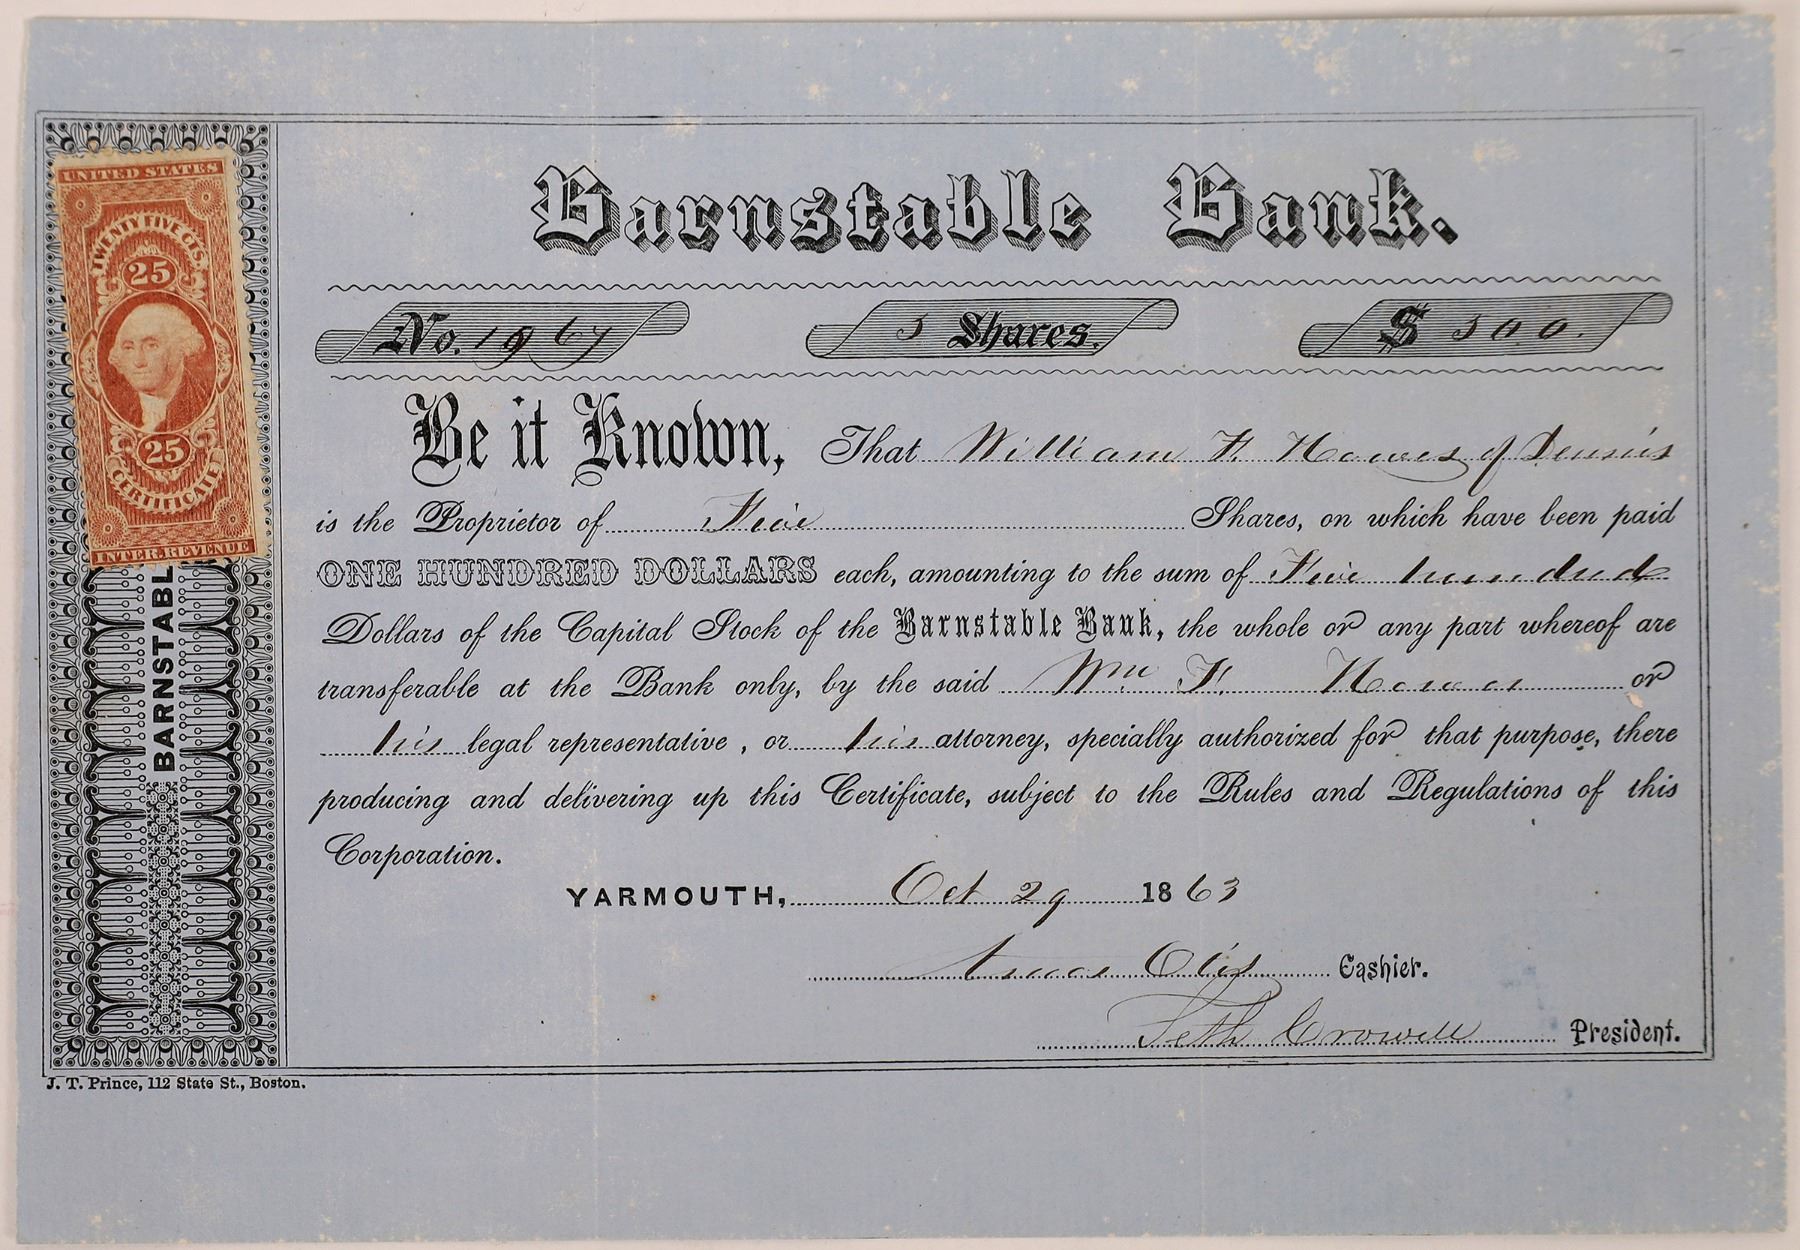 UNITED STATES
TWENTY FIVE CTS.
25
25
CERTIFICATE
INTER. REVENUE
BARNSTABL
Barnstable Bank.
No. 1967
5 Shares.
$ 500.
Be it Known, That William F. Howes of Dennis
is the Proprietor of Five Shares, on which have been paid
ONE HUNDRED DOLLARS each, amounting to the sum of Five hundred
Dollars of the Capital Stock of the Barnstable Bank, the whole or any part whereof are
transferable at the Bank only, by the said Wm F. Howes or
his legal representative, or his attorney, specially authorized for that purpose, there
producing and delivering up this Certificate, subject to the Rules and Regulations of this
Corporation.
YARMOUTH, Oct 29 1863
Amos Otis Cashier.
Seth Crowell President.
J. T. Prince, 112 State St., Boston.